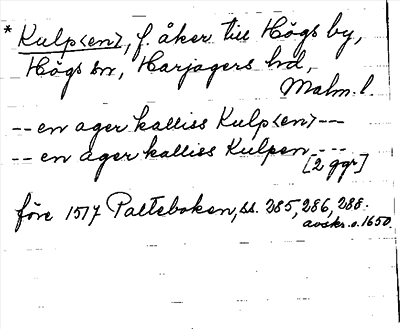 * Kulp<en>, f. åker till Högs by,
Högs sn, Harjagers hd,
Malm. l.
-- en ager kalliss Kulp<en> --
-- en ager kalliss Kulpen ---
[2 ggr]
före 1517 Palteboken, ss. 285, 286, 288.
avskr. o. 1650.